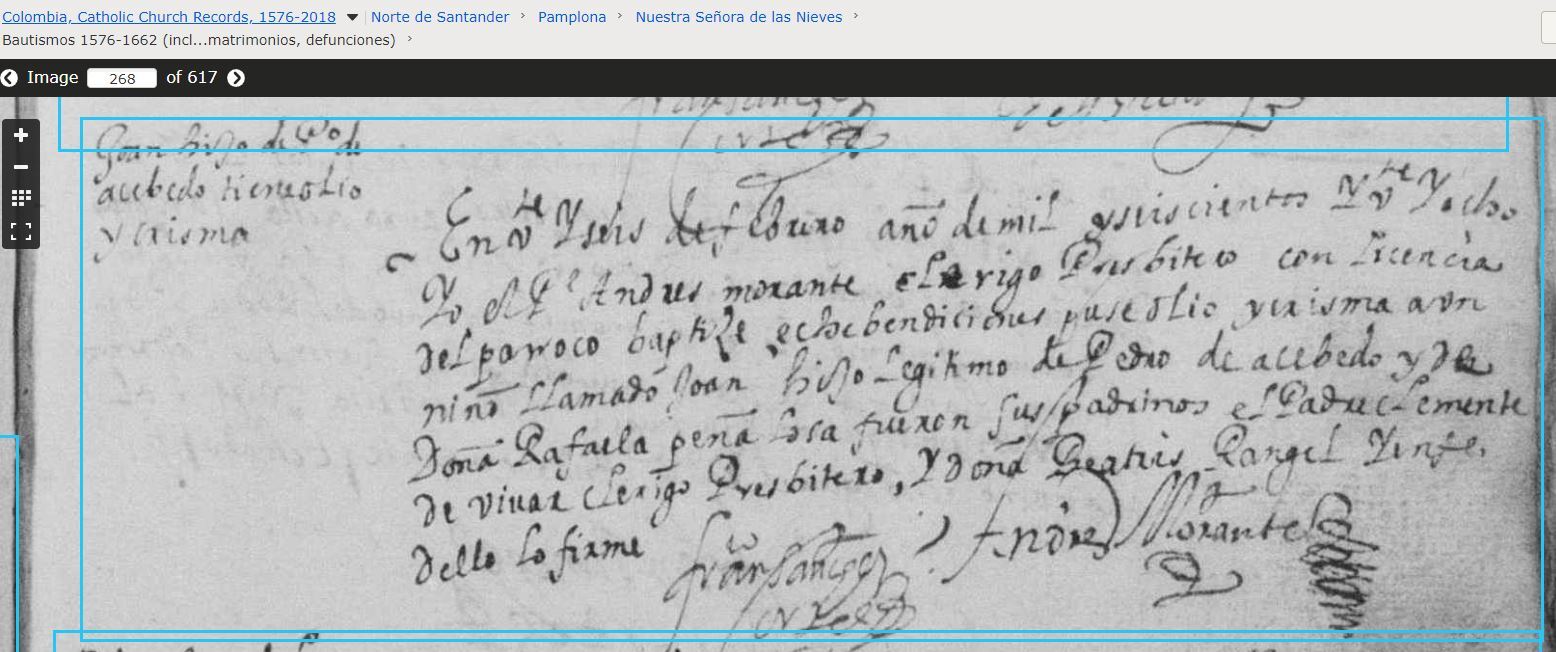 Colombia, Catholic Church Records, 1576-2018 Norte de Santander Pamplona Nuestra Señora de las Nieves
Bautismos 1576-1662 (incl...matrimonios, defunciones)
Image 268 of 617
Joan hijo de Po de
acebedo tiene olio
y crisma
En vte y seis de febrero año de mil y seiscientos y vte y ocho
Yo el Pe Andres morante clerigo Presbitero con licencia
del parroco baptize, eche bendiciones puse olio y crisma a un
niño llamado Joan hijo legitimo de Pedro de acebedo y de
Doña Rafaela peña losa fueron sus padrinos el Padre clemente
de vivar clerigo Presbitero, y doña Beatris Rangel y en fe
dello lo firme
Andres Morante